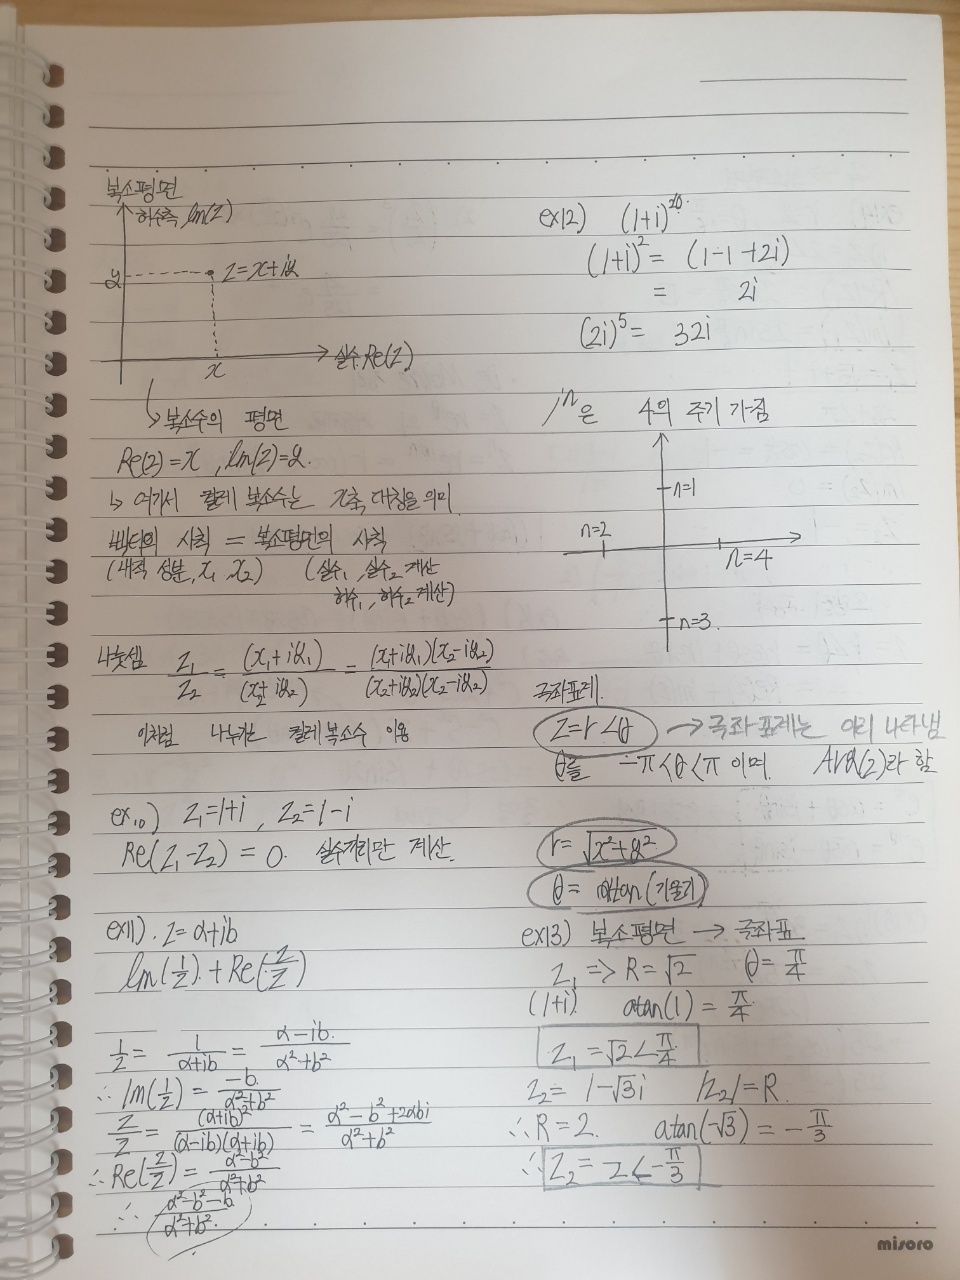 복소평면
허수축 Im(Z)
y
Z=x+iy
x
실수.Re(Z)
↳ 복소수의 평면
Re(Z)=x , Im(Z)=y.
↳ 여기서 켤레 복소수는 x축 대칭을 의미
벡터의 사칙 = 복소평면의 사칙
(내적 성분, x₁ x₂) (실수₁, 실수₂ 계산
허수₁, 허수₂ 계산)
나눗셈 Z₁/Z₂ = (x₁+iy₁)/(x₂+iy₂) = (x+iy₁)(x₂-iy₂)/(x₂+iy₂)(x₂-iy₂)
이처럼 나누기는 켤레복소수 이용
ex10) Z₁=1+i , Z₂=1-i
Re(Z₁-Z₂) = 0. 실수끼리만 계산.
ex11). Z=a+ib
Im(1/z) + Re(z/z̄)
1/z = 1/(a+ib) = (a-ib)/(a²+b²)
∴ Im(1/z) = -b/(a²+b²)
z/z̄ = (a+ib)²/(a-ib)(a+ib) = (a²-b²+2abi)/(a²+b²)
∴ Re(z/z̄) = (a²-b²)/(a²+b²)
∴ (a²-b²-b)/(a²+b²)
ex12) (1+i)
(1+i)² = (1-1+2i)
= 2i
(2i)⁵ = 32i
iⁿ은 4의 주기 가짐
n=1
n=2
n=4
n=3.
극좌표계.
Z=r∠θ → 극좌표계는 이리 나타냄
θ를 -π<θ<π 이며. Arg(Z)라 함
r=√(x²+y²)
θ= atan(기울기)
ex13) 복소평면 → 극좌표
Z₁ => R=√2 θ=π/4
(1+i) atan(1) = π/4
Z₁ =√2∠π/4
Z₂= 1-√3i |Z₂|=R.
∴ R=2. atan(-√3) = -π/3
∴ Z₂= 2∠-π/3
misoro